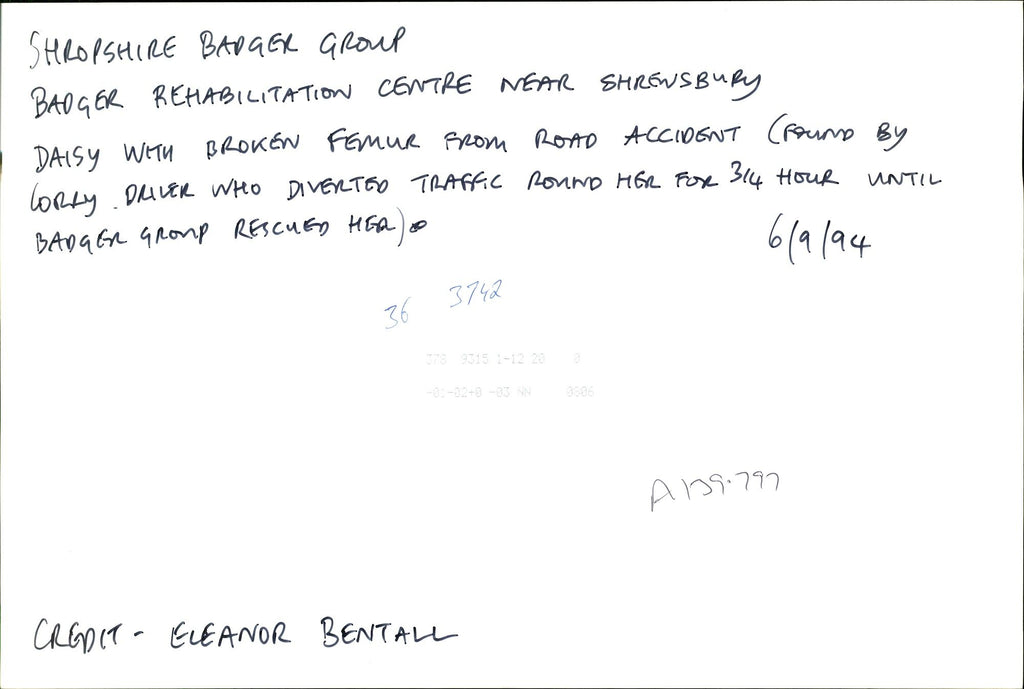 SHROPSHIRE BADGER GROUP
BADGER REHABILITATION CENTRE NEAR SHREWSBURY
DAISY WITH BROKEN FEMUR FROM ROAD ACCIDENT (FOUND BY
LORRY DRIVER WHO DIVERTED TRAFFIC ROUND HER FOR 3/4 HOUR UNTIL
BADGER GROUP RESCUED HER)
6/9/94
36 3742
9315 1-12 20 0
-03 NN
CREDIT - ELEANOR BENTALL